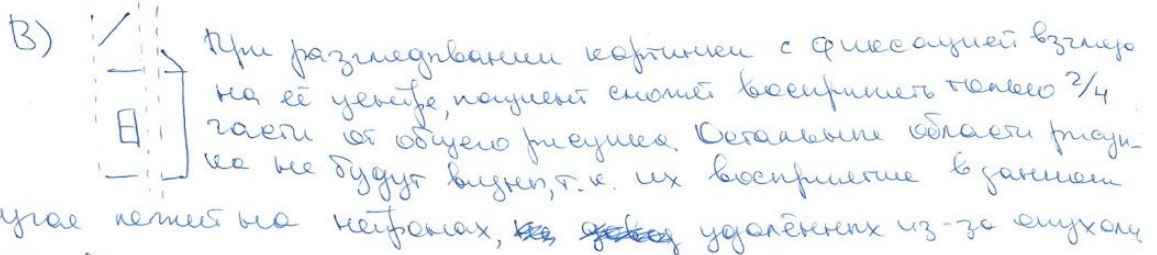 В)
При разглядывании картинки с фиксацией взгляда
на её центре, пациент сможет воспринять только 2/4
части от общего рисунка. Остальные области рисун-
ка не будут видны, т.к. их восприятие в данном
угле лежит на нейронах, удалённых из-за опухоли